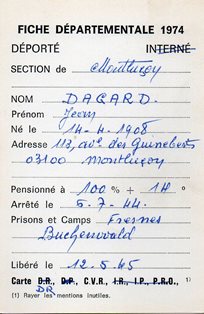 FICHE DÉPARTEMENTALE 1974
DÉPORTÉ INTERNÉ
SECTION de Montluçon
NOM DAGARD.
Prénom Jean
Né le 14-4-1908
Adresse 113, av. des Guineberts
03100 Montluçon
Pensionné à 100 % + 14°
Arrêté le 5.7.44
Prisons et Camps Fresnes
Buchenwald
Libéré le 12.5.45
Carte D.R., D.P., C.V.R., I.R., I.P., P.R.O., 1)
DR
(1) Rayer les mentions inutiles.